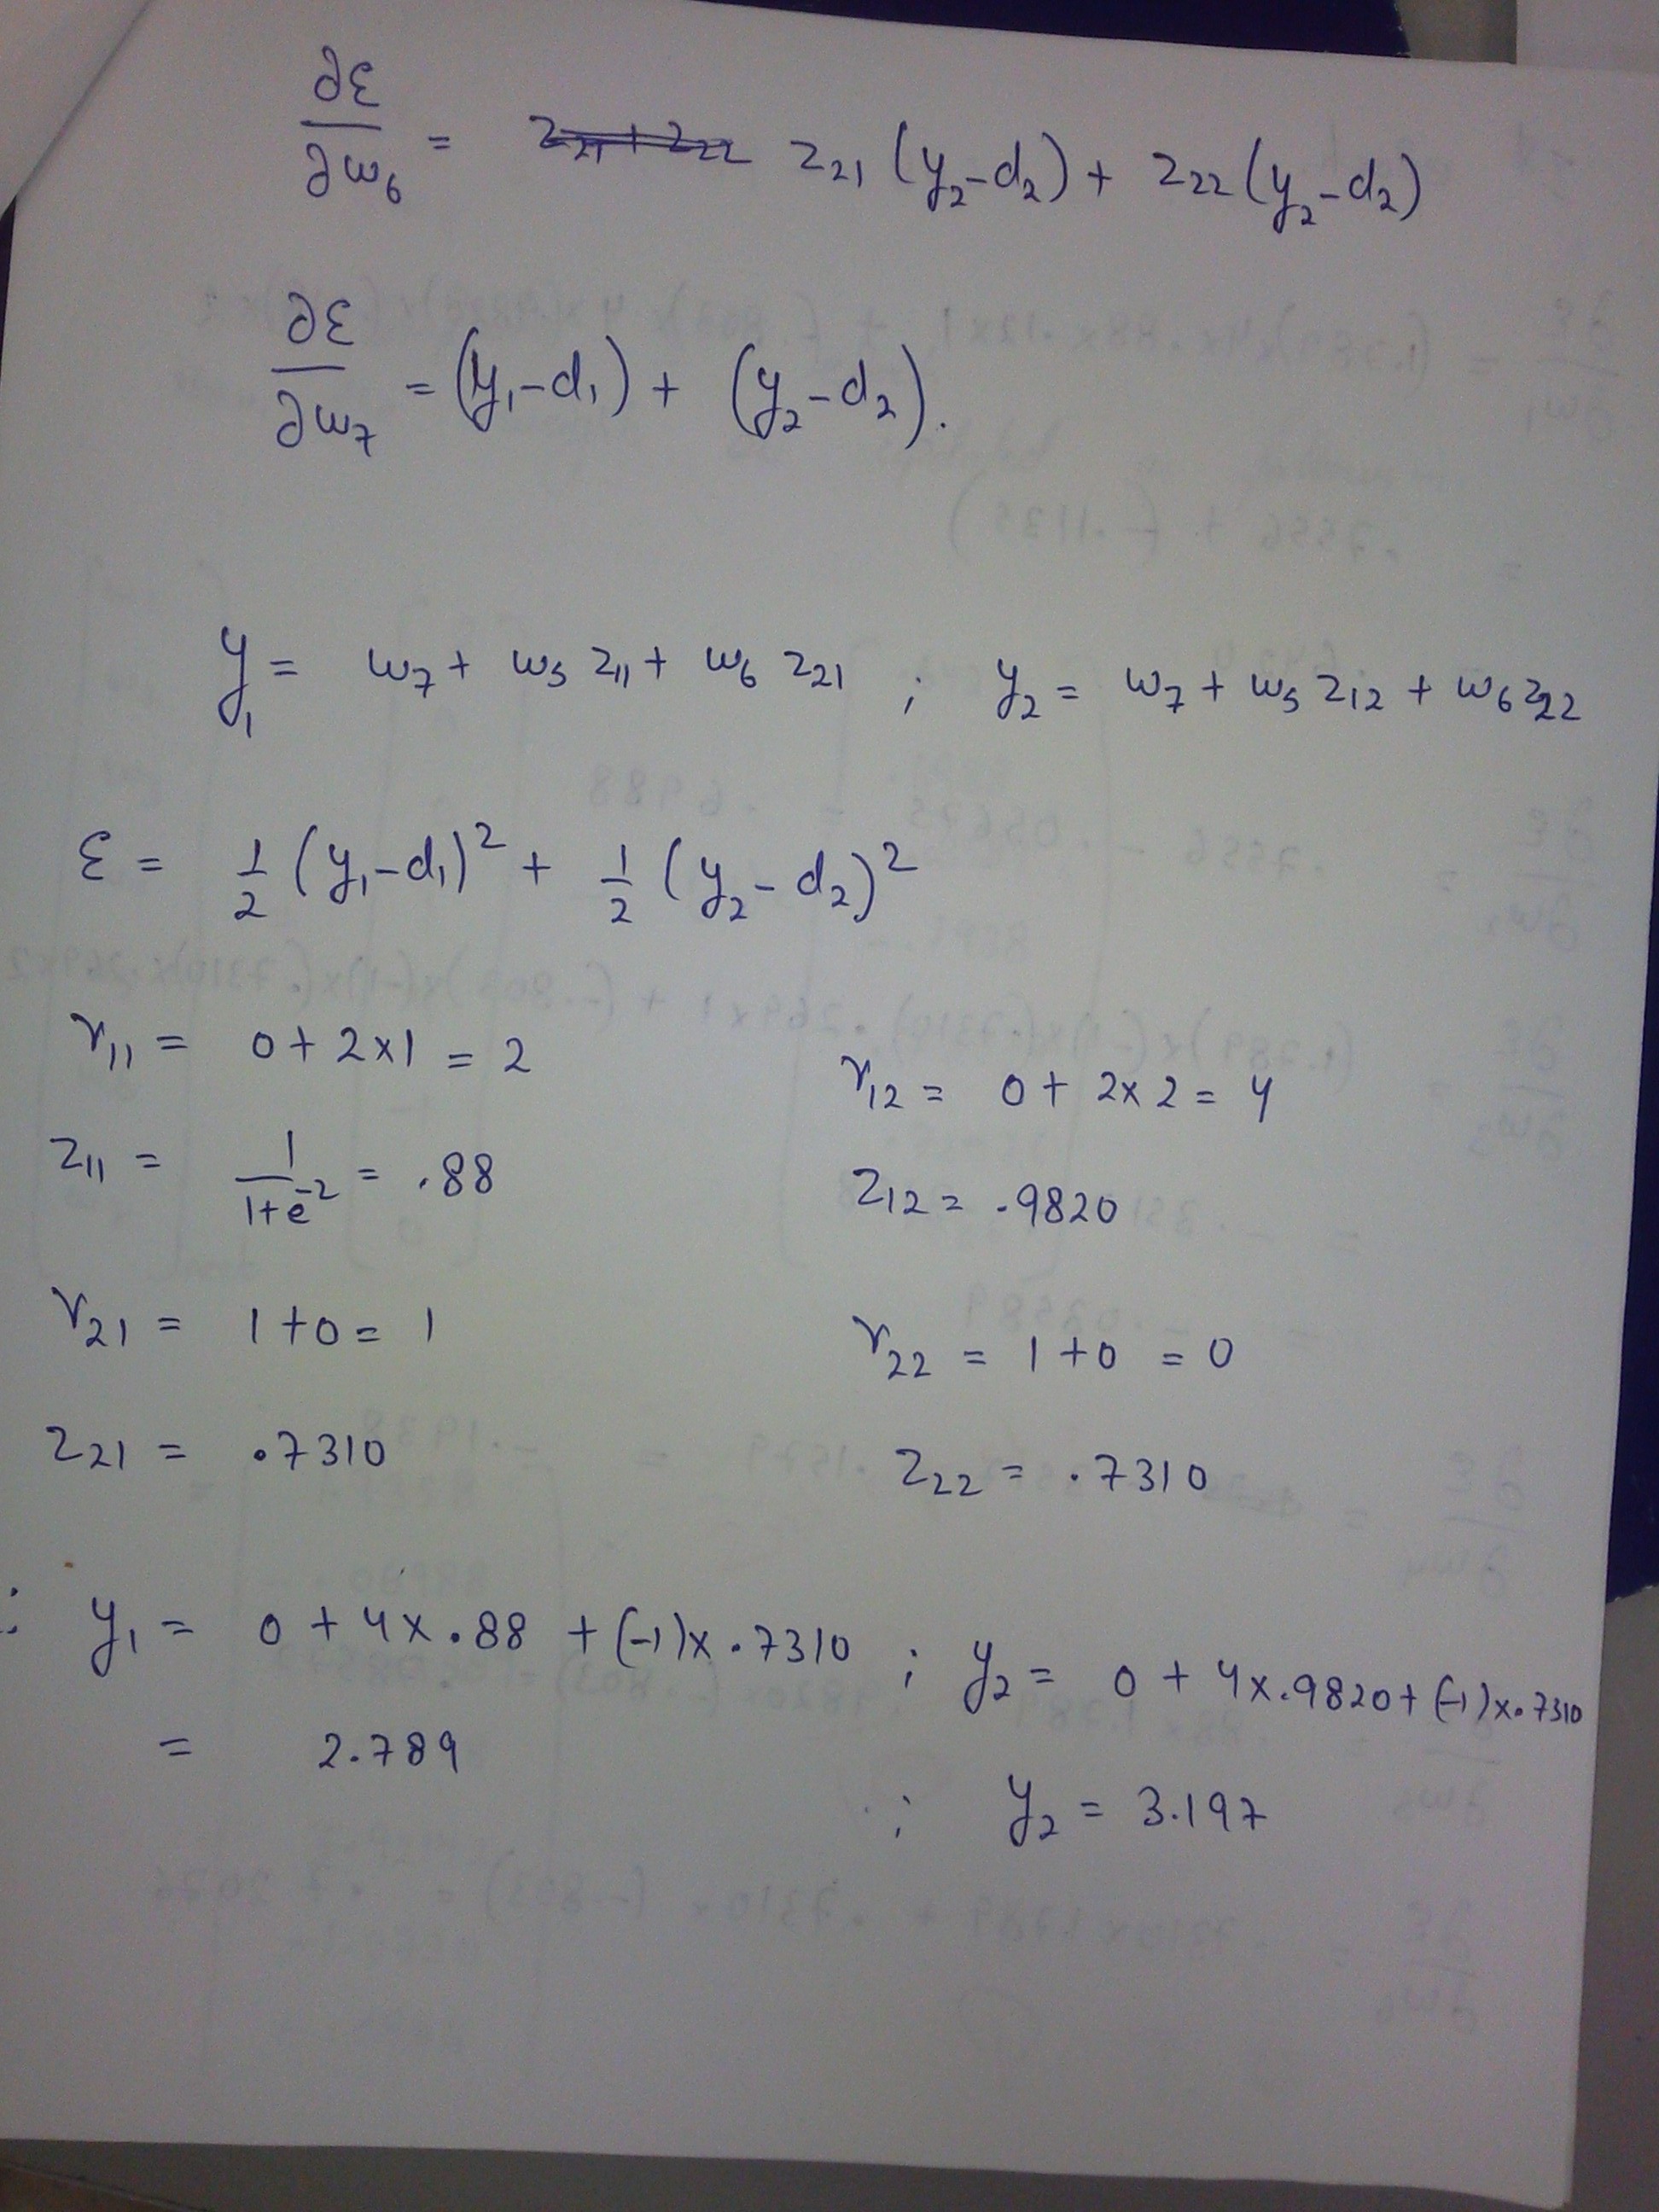 ∂ε/∂w₆ = z₂₁+z₂₂ z₂₁ (y₂-d₂) + z₂₂ (y₂-d₂)
∂ε/∂w₇ = (y₁-d₁) + (y₂-d₂).
y₁ = w₇ + w₅ z₁₁ + w₆ z₂₁ ; y₂ = w₇ + w₅ z₁₂ + w₆ z₂₂
ε = 1/2 (y₁-d₁)² + 1/2 (y₂-d₂)²
r₁₁ = 0 + 2×1 = 2
r₁₂ = 0 + 2×2 = 4
z₁₁ = 1/(1+e⁻²) = .88
z₁₂ = .9820
r₂₁ = 1+0 = 1
r₂₂ = 1+0 = 0
z₂₁ = .7310
z₂₂ = .7310
∴ y₁ = 0 + 4×.88 + (-1)×.7310 ; y₂ = 0 + 4×.9820 + (-1)×.7310
= 2.789
; y₂ = 3.197